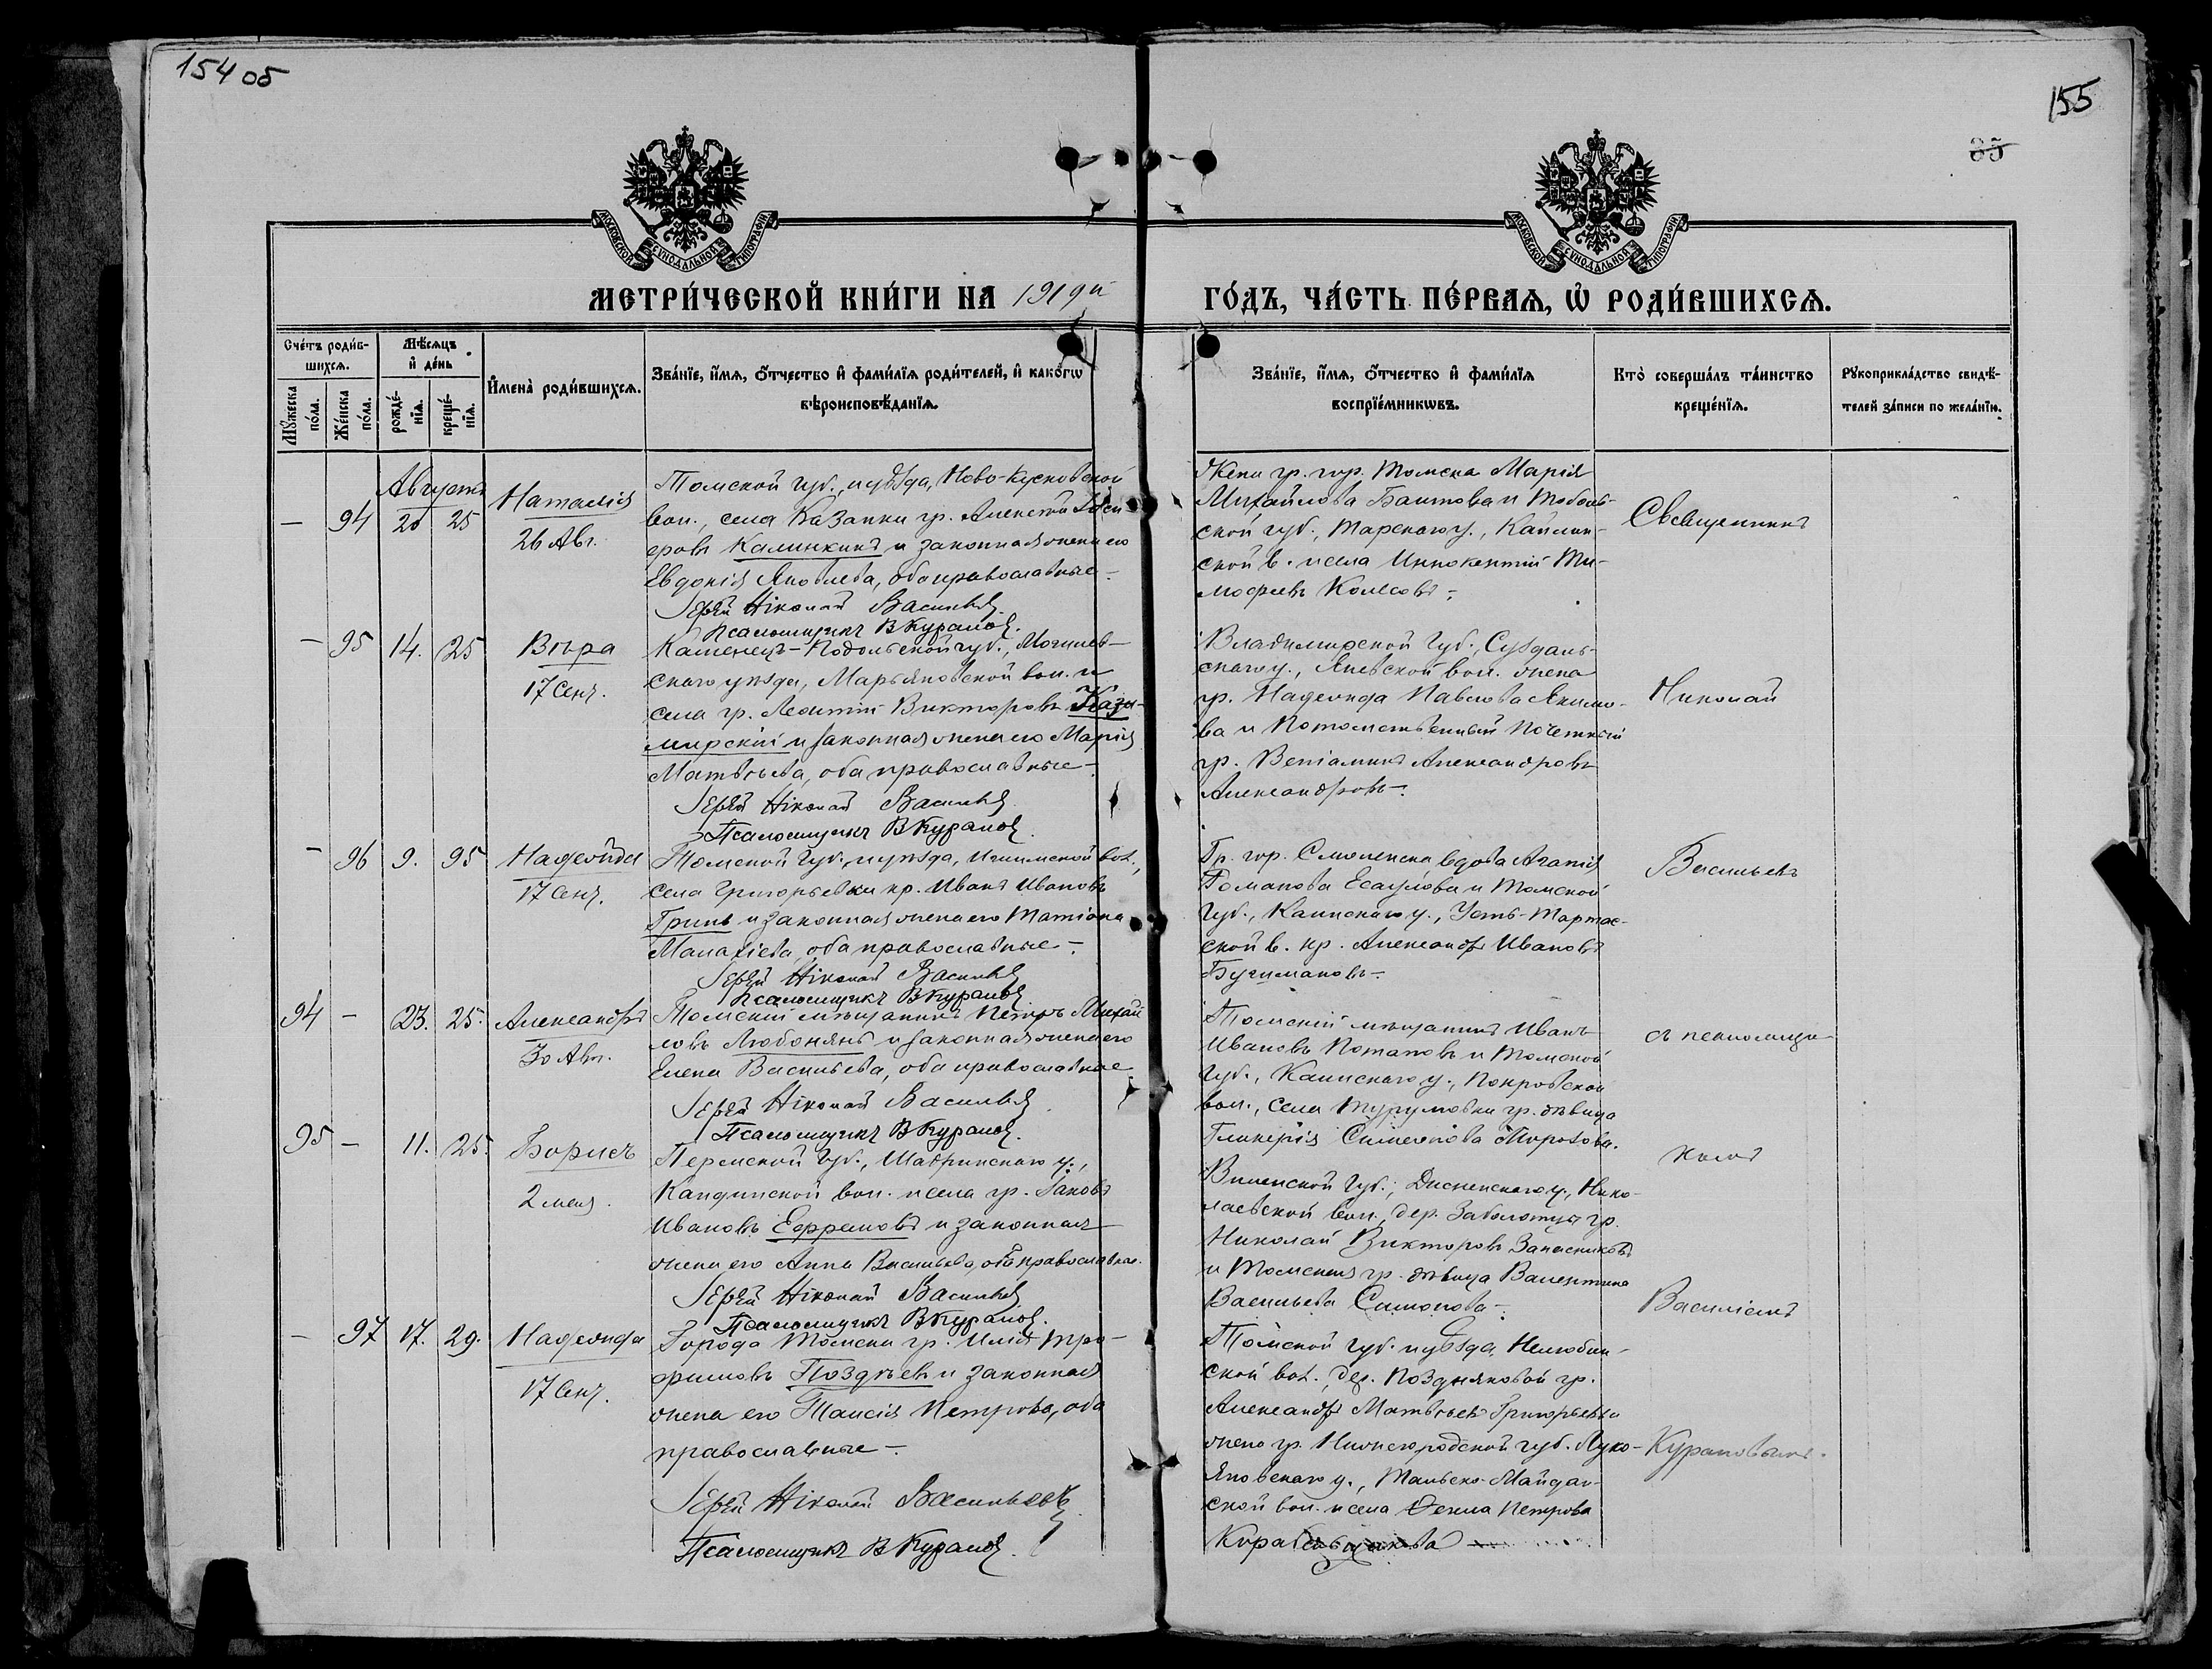 154 об
155
85
МОСКОВСКОЙ СѴНОДАЛЬНОЙ ТИПОГРАФІИ
МОСКОВСКОЙ СѴНОДАЛЬНОЙ ТИПОГРАФІИ
МЕТРИ́ЧЕСКОЙ КНИ́ГИ НА 1919й
ГО́ДЪ, ЧА́СТЬ ПЕ́РВАѦ, Ѡ҆ РОДИ́ВШИХСѦ.
Сче́тъ роди́в-
шихсѧ.
Мꙋ́жеска по́ла.
Же́нска по́ла.
Мѣ́сѧцъ
и҆ де́нь
рожде́-
нїѧ.
креще́-
нїѧ.
И҆мена̀ роди́вшихсѧ.
Зва́нїе, и҆́мѧ, ѻ҆́тчество и҆ фами́лїѧ роди́телей, и҆ како́гѡ
вѣроисповѣ́данїѧ.
Зва́нїе, и҆́мѧ, ѻ҆́тчество и҆ фами́лїѧ
воспрїе́мникѡвъ.
Кто̀ соверша́лъ та́инство
креще́нїѧ.
Рꙋкоприкла́дство свидѣ́-
телей за́писи по жела́нїю.
Августъ
— 94 20 25 Наталія
26 Авг.
Томской губ., и уѣзда, Ново-Кусковской
вол., села Казанки гр. Алексѣй
Калинкинъ и законная жена его
Евдокія Яковлева, оба православные
Іерей Николай Васильев
Псаломщикъ В Курановъ
Жена гр. гор. Томска Марія
Михайлова Баитова и Тоболь-
ской губ., Тарскаго у.,
ской в. и села Иннокентій Ти-
мофеевъ Колесовъ
Священникъ
— 95 14. 25 Вѣра
17 Сент.
Каменецъ-Подольской губ., Могилев-
скаго уѣзда, Марьяновской вол. и
села гр. Леонтій Викторовъ Кази-
мирскій и законная жена его Марія
Матвѣева, оба православные
Іерей Николай Васильев
Псаломщикъ В Курановъ
Владимирской губ., Суздаль-
скаго у., Яневской вол. жена
гр. Надежда Павлова Якимо-
ва и Потомственный Почетный
гр. Веніаминъ Александровъ
Александровъ
Николай
— 96 9. 95 Надежда
17 Сент.
Томской губ. и уѣзда, Ишимской вол.,
села Григорьевки кр. Иванъ Ивановъ
Гринь и законная жена его Татіана
Малахіева, оба православные
Іерей Николай Васильев
Псаломщикъ В Курановъ
Гр. гор. Смоленска вдова Агапія
Романова Есаулова и Томской
губ., Каинскаго у., Усть-Тартас-
ской в. кр. Александръ Ивановъ
Васильевъ
94 — 23. 25. Александръ
30 Авг.
Томскій мѣщанинъ Петръ Михай
ловъ и законная жена его
Елена Васильева, оба православные
Іерей Николай Васильев
Псаломщикъ В Курановъ
Томскій мѣщанинъ Иванъ
Ивановъ Потаповъ и Томской
губ., Каинскаго у., Покровской
вол., села Турумовки гр. дѣвица
Гликерія Симеонова Морозова.
съ псаломщи-
95 — 11. 25. Борисъ
2 мая.
Пермской губ., Шадринскаго у.,
вол. и села гр. Іаковъ
Ивановъ Ефремовъ и законная
жена его Анна Васильева, оба православные.
Іерей Николай Васильев
Псаломщикъ В Курановъ
Виленской губ., Дисненскаго у., Нико-
лаевской вол., дер. Заболотцы гр.
Николай Викторовъ Запасниковъ
и Томская гр. дѣвица Валентина
Васильева Симонова
комъ
Василіемъ
— 97 17. 29. Надежда
17 Сент.
Города Томска гр. Илія Тро-
фимовъ Поздѣевъ и законная
жена его Таисія Петрова, оба
православные
Іерей Николай Васильевъ
Псаломщикъ В Курановъ
Томской губ. и уѣзда, Нелюбин-
ской вол., дер. Поздняковой гр.
Александръ Матвѣевъ Григорьевъ и
жена гр. Нижегородской губ. Луко-
яновскаго у., Майдан-
ской вол. и села Фекла Петрова
Курановымъ.